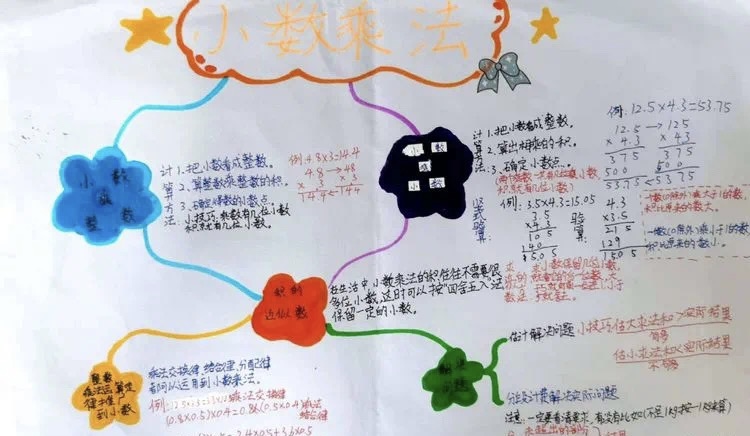 小数乘法
小数
乘
整数
计 1.把小数看成整数。
算 2.算整数乘整数的积。
方 3.确定得数的小数点。
法: 小技巧:乘数有几位小数
积就有几位小数。
例:4.8×3=14.4
4.8→48
× 3 × 3
14.4←144
小数
乘
小数
计 1.把小数看成整数。
算 2.算出相乘的积。
方
法: 3.确定小数点。
积就有几位小数)
例:12.5×4.3=53.75
12.5→125
× 4.3 × 43
375 375
500 500
53.75←5375
竖式验算:
例:3.5×4.3=15.05
3.5
×4.3
105
140
15.05
验算:
4.3
×3.5
215
129
15.05
一个数(0除外)乘大于1的数
积比原来的数大。
一个数(0除外)乘小于1的数
积比原来的数小。
积的
近似数
在生活中,小数乘法的积往往不需要很
多位小数,这时可以按“四舍五入”法
保留一定的小数。
整数
乘法运算定
律推广
到小数
乘法交换律,结合律,分配律
都可以运用到小数乘法。
乘法交换律
(0.8×0.5)×0.4=0.8×(0.5×0.4)
乘法
结合律
解决
问题
估计解决问题
小技巧:估大乘法和>实际结果
估小乘法和<实际结果
不够
分段计费解决实际问题